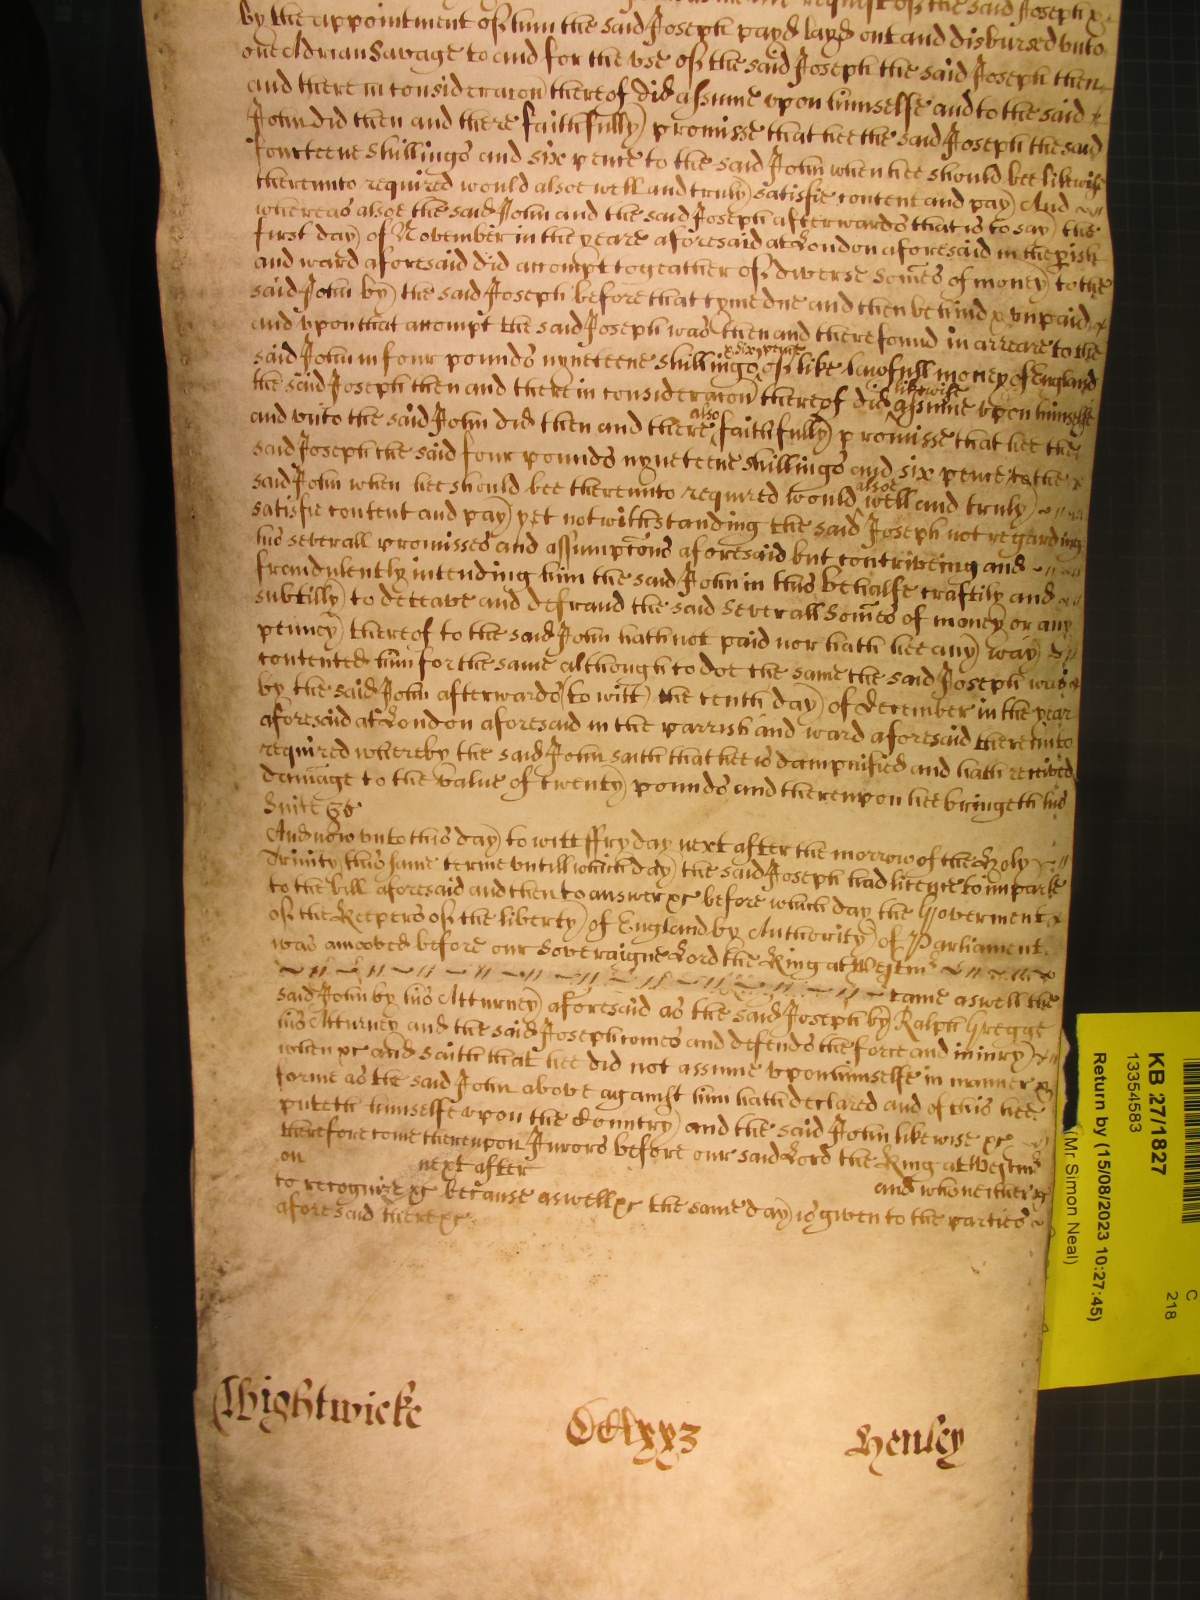 request of the said Joseph &
by the appointment of him the said Joseph payd layd out and disbursed vnto
one Adrian Savage to and for the vse of the said Joseph the said Joseph then
and there in consideracon thereof did assume vpon himselfe and to the said
John did then and there faithfully promisse that hee the said Joseph the said
fourteene shillings and six pence to the said John when hee should bee likewise
therevnto required would alsoe well and truly satisfie content and pay And
whereas alsoe the said John and the said Joseph afterwards that is to say the
first day of November in the yeare aforesaid at London aforesaid in the pish
and ward aforesaid did accompt togeather of diverse somes of money to the
said John by the said Joseph before that tyme due and then behind & vnpaid
and vpon that accompt the said Joseph was then and there found in arreare to the
said John in four pounds nyneteene shillings & six pence of like lawfull money of England
the said Joseph then and there in consideracon thereof did likewise assume vpon himselfe
and vnto the said John did then and there also faithfully promisse that hee the
said Joseph the said four pounds nyneteene shillings and six pence to the
said John when hee should bee therevnto required would alsoe well and truly
satisfie content and pay yet notwithstanding the said Joseph not regarding
his severall promisses and assumptons aforesaid but contriveing and
fraudulently intending him the said John in this behalfe craftily and
subtilly to deceave and defraud the said severall somes of money or any
penney thereof to the said John hath not paid nor hath hee any way
contented him for the same although to doe the same the said Joseph was
by the said John afterwards (to witt) the tenth day of December in the year
aforesaid at London aforesaid in the parrish and ward aforesaid therevnto
required whereby the said John saith that hee is dampnified and hath received
damage to the value of twenty pounds and therevpon hee bringeth his
Suite &c
And now vnto this day to witt ffryday next after the morrow of the Holy
Trinity this same terme vntill which day the said Joseph had licence to imparle
to the bill aforesaid and then to answer &c before which day the Goverment
of the Keepers of the liberty of England by Authority of Parliament
was amoved before our Soveraigne Lord the King at Westm
came aswell the
said John by his Atturney aforesaid as the said Joseph by Ralph Gregge
his Atturney and the said Joseph comes and defends the force and iniury
when &c and saith that hee did not assume vpon himselfe in manner &
forme as the said John above against him hath declared and of this hee
puteth himselfe vpon the Country and the said John likewise &c
therefore come therevpon Jurors before our said Lord the King at Westm
on next after and who neither &c
to recognize &c because aswell &c the same day is given to the parties
aforesaid there &c
Wightwicke
CCCxxz
Henley
KB 27/1827
13354583
Return by (15/08/2023 10:27:45)
(Mr Simon Neal)
C
218